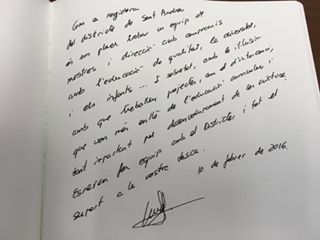 Com a regidora
del districte de Sant Andreu
és un plaer trobar un equip de
mestres i direcció amb compromís
amb l'educació de qualitat, la diversitat,
i els infants... I sobretot, amb la il·lusió
amb que treballen projectes, com el d'intercanvi,
que van més enllà de l'educació curricular, i
tant important pel desenvolupament de les criatures
Esperem fer equip amb el Districte i tot el
suport a la vostra tasca.
10 de febrer de 2016.